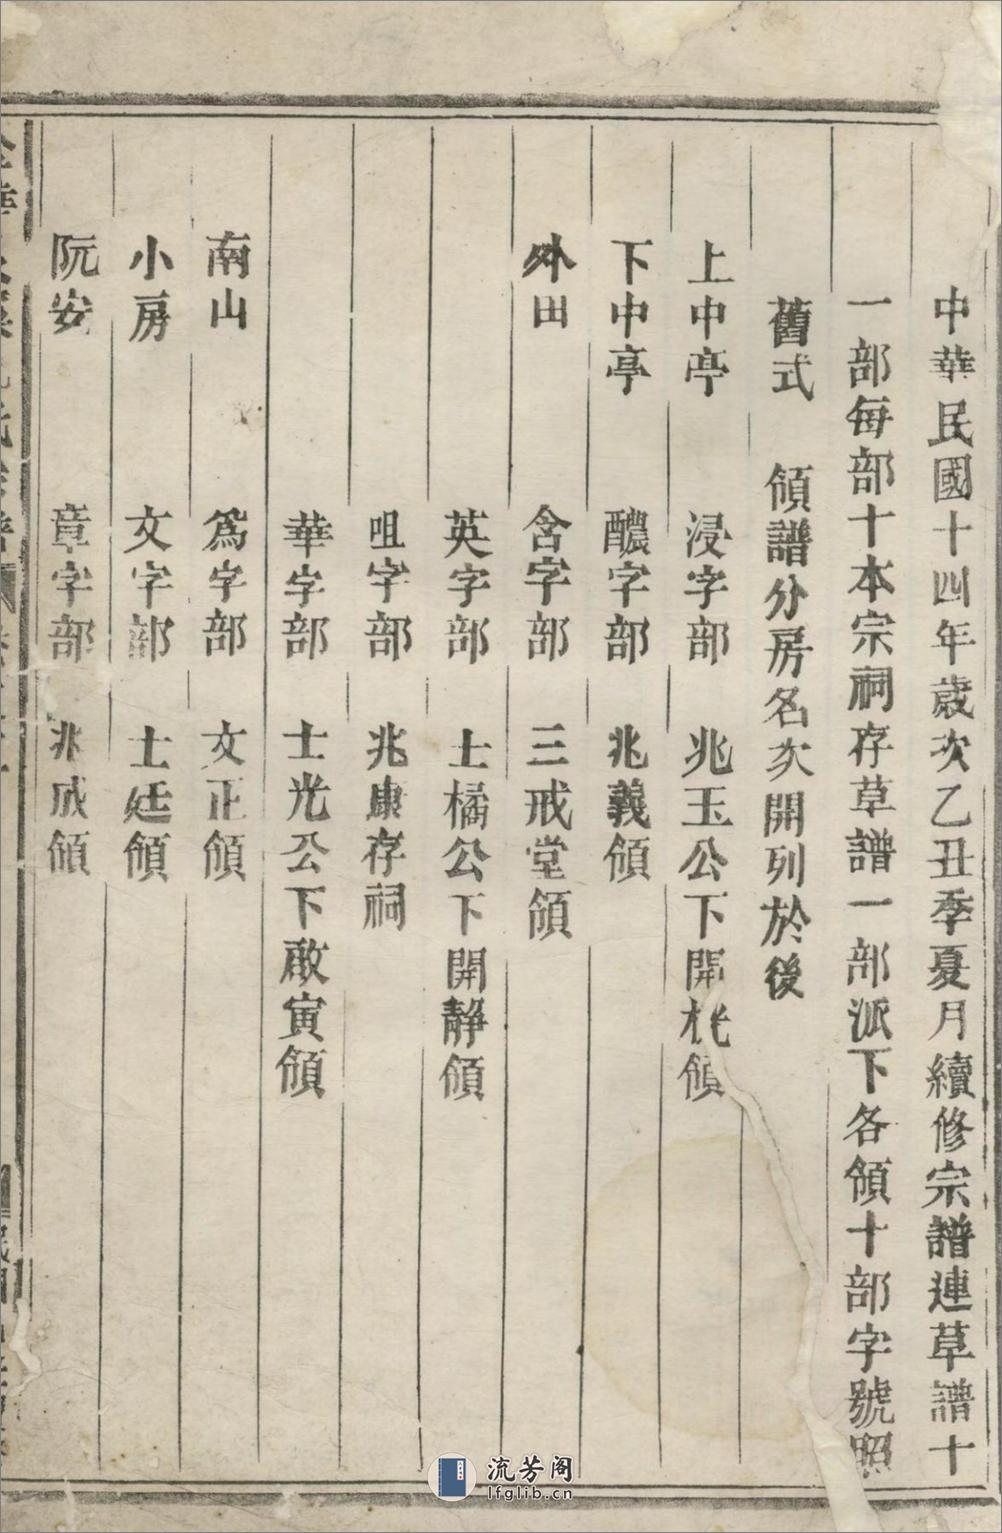 中華民國十四年歲次乙丑季夏月續修宗譜連草譜十
一部每部十本宗祠存草譜一部派下各領十部字號照
舊式 領譜分房名次開列於後
上中亭 浸字部 兆玉公下開桄領
下中亭 醲字部 兆義領
外田 含字部 三戒堂領
英字部 士橘公下開靜領
咀字部 兆康存祠
華字部 士光公下敢寅領
南山 爲字部 文正領
小房 文字部 士廷領
阮安 章字部 兆成領
流芳阁
lfglib.cn